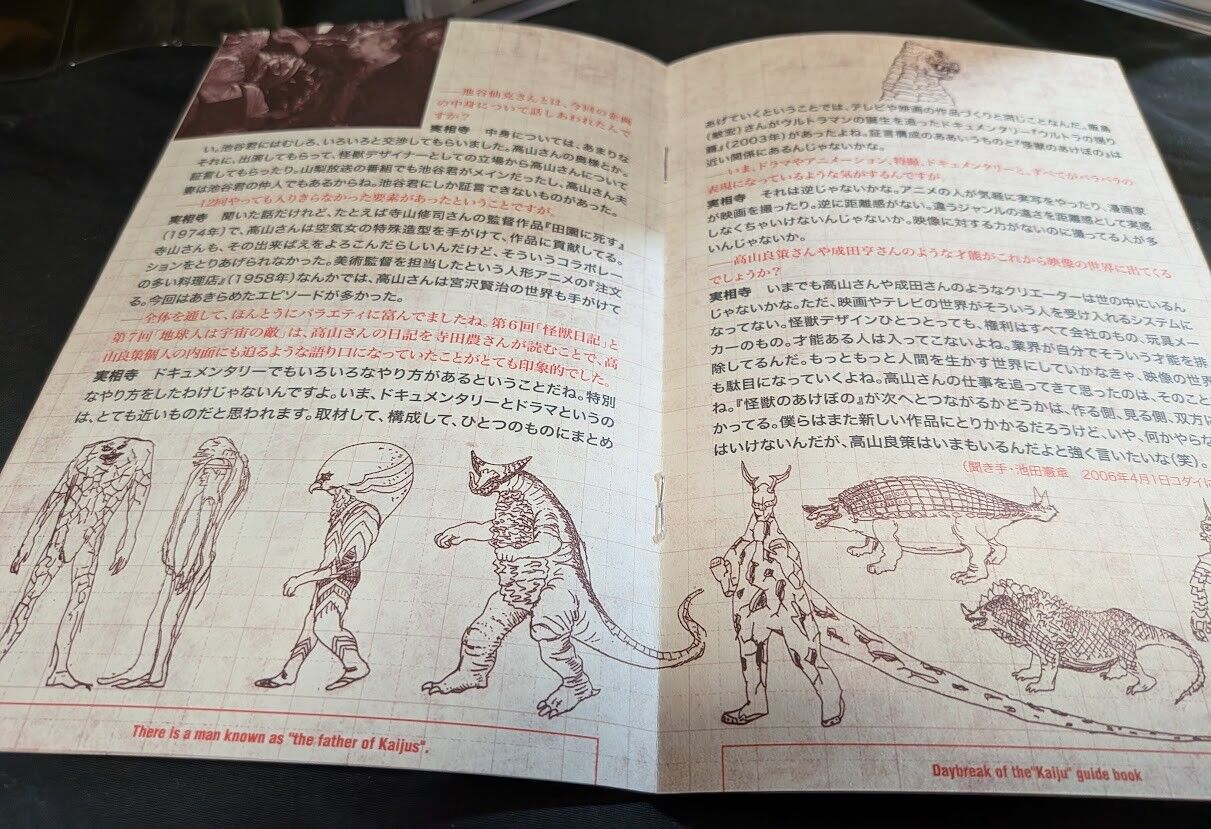 —池谷仙克さんとは、今回の企画
の中身について話しあわれたんで
すか?
実相寺　中身については、あまりな
い。池谷君にはむしろ、いろいろと交渉してもらいました。高山さんの奥様とか。
それに、出演してもらって、怪獣デザイナーとしての立場から高山さんについて
証言してもらったり。山梨放送の番組でも池谷君がメインだったし、高山さん夫
妻は池谷君の仲人でもあるからね。池谷君にしか証言できないものがあった。
—12回やっても入りきらなかった要素があったということですが。
実相寺　聞いた話だけれど、たとえば寺山修司さんの監督作品『田園に死す』
(1974年)で、高山さんは空気女の特殊造型を手がけて、作品に貢献してる。
寺山さんも、その出来ばえをよろこんだらしいんだけど、そういうコラボレー
ションをとりあげられなかった。美術監督を担当したという人形アニメの『注文
の多い料理店』(1958年)なんかでは、高山さんは宮沢賢治の世界も手がけて
る。今回はあきらめたエピソードが多かった。
—全体を通して、ほんとうにバラエティに富んでましたね。第6回「怪獣日記」と
第7回「地球人は宇宙の敵」は、高山さんの日記を寺田農さんが読むことで、高
山良策個人の内面にも迫るような語り口になっていたことがとても印象的でした。
実相寺　ドキュメンタリーでもいろいろなやり方があるということだね。特別
なやり方をしたわけじゃないんですよ。いま、ドキュメンタリーとドラマというの
は、とても近いものだと思われます。取材して、構成して、ひとつのものにまとめ
There is a man known as "the father of Kaijus".
あげていくということでは、テレビや映画の作品づくりと同じことなんだ。飯島
(敏宏)さんがウルトラマンの誕生を追ったドキュメンタリー『ウルトラの揺り
籠』(2003年)があったよね。証言構成のああいうものと『怪獣のあけぼの』は
近い関係にあるんじゃないかな。
—いま、ドラマやアニメーション、特撮、ドキュメンタリーと、すべてがバラバラの
表現になっているような気がするんですが。
実相寺　それは逆じゃないかな。アニメの人が気軽に実写をやったり、漫画家
が映画を撮ったり。逆に距離感がない。違うジャンルの遠さを距離感として実感
しなくちゃいけないんじゃないか。映像に対する力がないのに撮ってる人が多
いんじゃないか。
—高山良策さんや成田亨さんのような才能がこれから映像の世界に出てくる
でしょうか?
実相寺　いまでも高山さんや成田さんのようなクリエーターは世の中にいるん
じゃないかな。ただ、映画やテレビの世界がそういう人を受け入れるシステムに
なってない。怪獣デザインひとつとっても、権利はすべて会社のもの、玩具メー
カーのもの。才能ある人は入ってこないよね。業界が自分でそういう才能を排
除してるんだ。もっともっと人間を生かす世界にしていかなきゃ、映像の世界
も駄目になっていくよね。高山さんの仕事を追ってきて思ったのは、そのこと
ね。『怪獣のあけぼの』が次へとつながるかどうかは、作る側、見る側、双方に
かかってる。僕らはまた新しい作品にとりかかるだろうけど、いや、何かやらな
はいけないんだが、高山良策はいまもいるんだよと強く言いたいな(笑)。
(聞き手・池田憲章　2006年4月1日コダイに
Daybreak of the"Kaiju" guide book